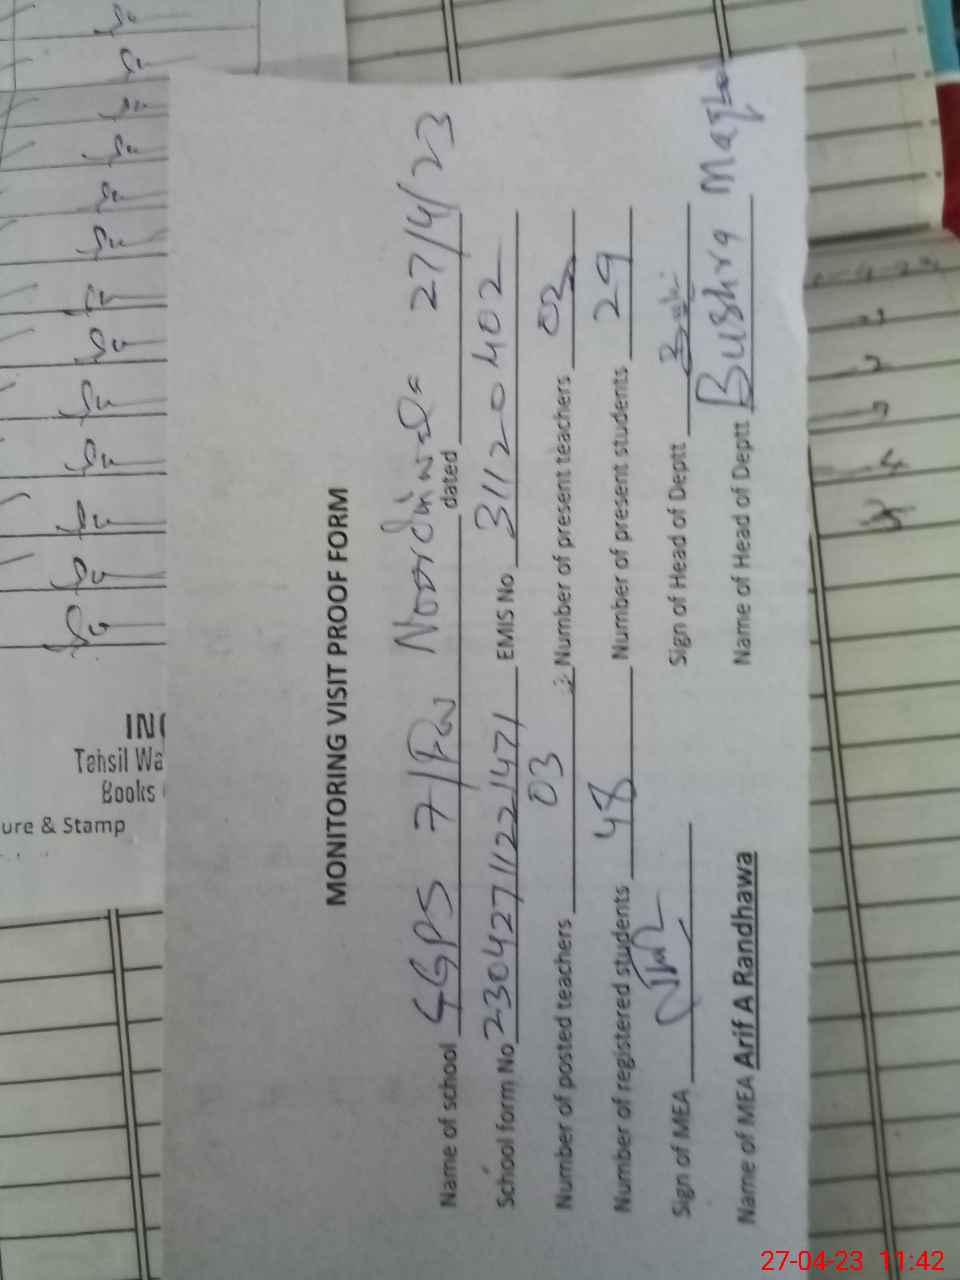 MONITORING VISIT PROOF FORM
Name of school GGPS 7/FW dated 27/4/23
School form No 23042711221471 EMIS No 31120402
Number of posted teachers 03 Number of present teachers 02
Number of registered students 48 Number of present students 29
Sign of MEA Sign of Head of Deptt
Name of MEA Arif A Randhawa Name of Head of Deptt Bushra
Tehsil Wa
Books
ure & Stamp
27-04-23 11:42